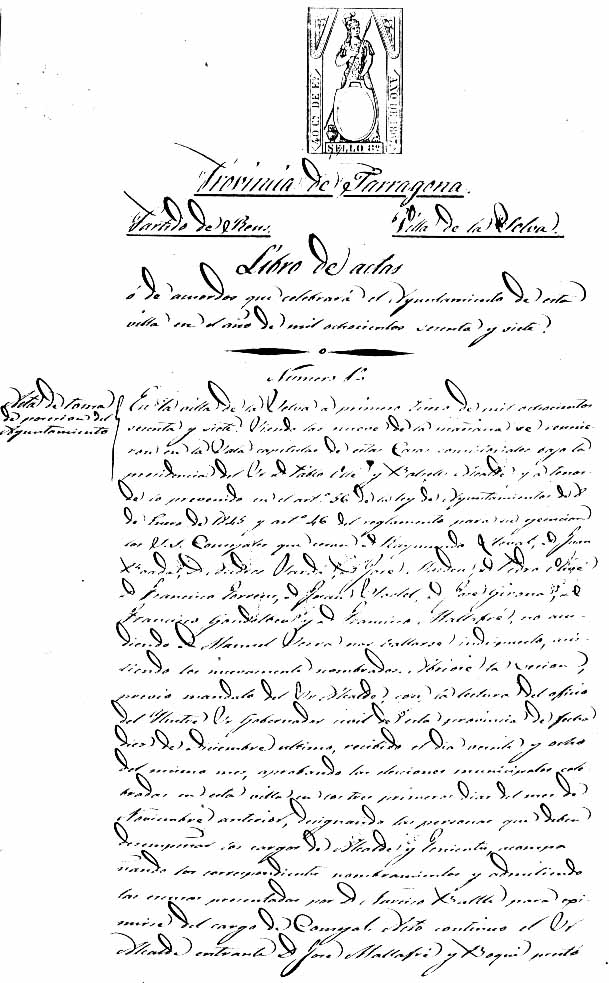 40 Cs DE Eo
AÑO DE 1867
SELLO 8º
Provincia de Tarragona.
Partido de Reus.
Villa de la Selva.
Libro de actas
ó de acuerdos que celebrará el Ayuntamiento de esta
villa en el año de mil ochocientos sesenta y siete.
Número 1º
Acta de toma
de posesion del
Ayuntamiento
En la villa de la Selva a primero Enero de mil ochocientos
sesenta y siete. Siendo las nueve de la mañana se reunie-
ron en la Sala capitular de estas Casas consistoriales bajo la
presidencia del Sr. D. Pablo y Alcalde y a tenor
de lo prevenido en el artº 56 de la ley de Ayuntamientos de 8
de Enero de 1845 y artº 46 del reglamento para su ejecucion
los S.S. Concejales que eran D. Raymundo D. Juan
D. D. José D. Pedro
D. Francisco D. Juan D. José Girona, D.
Francisco y D. Francisco Mallafré, no acu-
diendo D. Manuel Serra por hallarse indispuesto, asis-
tiendo los nuevamente nombrados. Abriose la sesion,
previo mandato del Sr. Alcalde, con la lectura del oficio
del Ilustre Sr. Gobernador civil de esta provincia de fecha
diez de diciembre ultimo, recibido el dia veinte y ocho
del mismo mes, aprobando las elecciones municipales cele-
bradas en esta villa en los tres primeros dias del mes de
Noviembre anterior, designando las personas que deben
desempeñar los cargos de Alcalde y Teniente, acompa-
ñando los correspondientes nombramientos y admitiendo
las escusas presentadas por D. Narciso Batlle para exi-
mirse del cargo de Concejal. Acto continuo el Sr.
Alcalde entrante D. José Mallafré y Boqué prestó